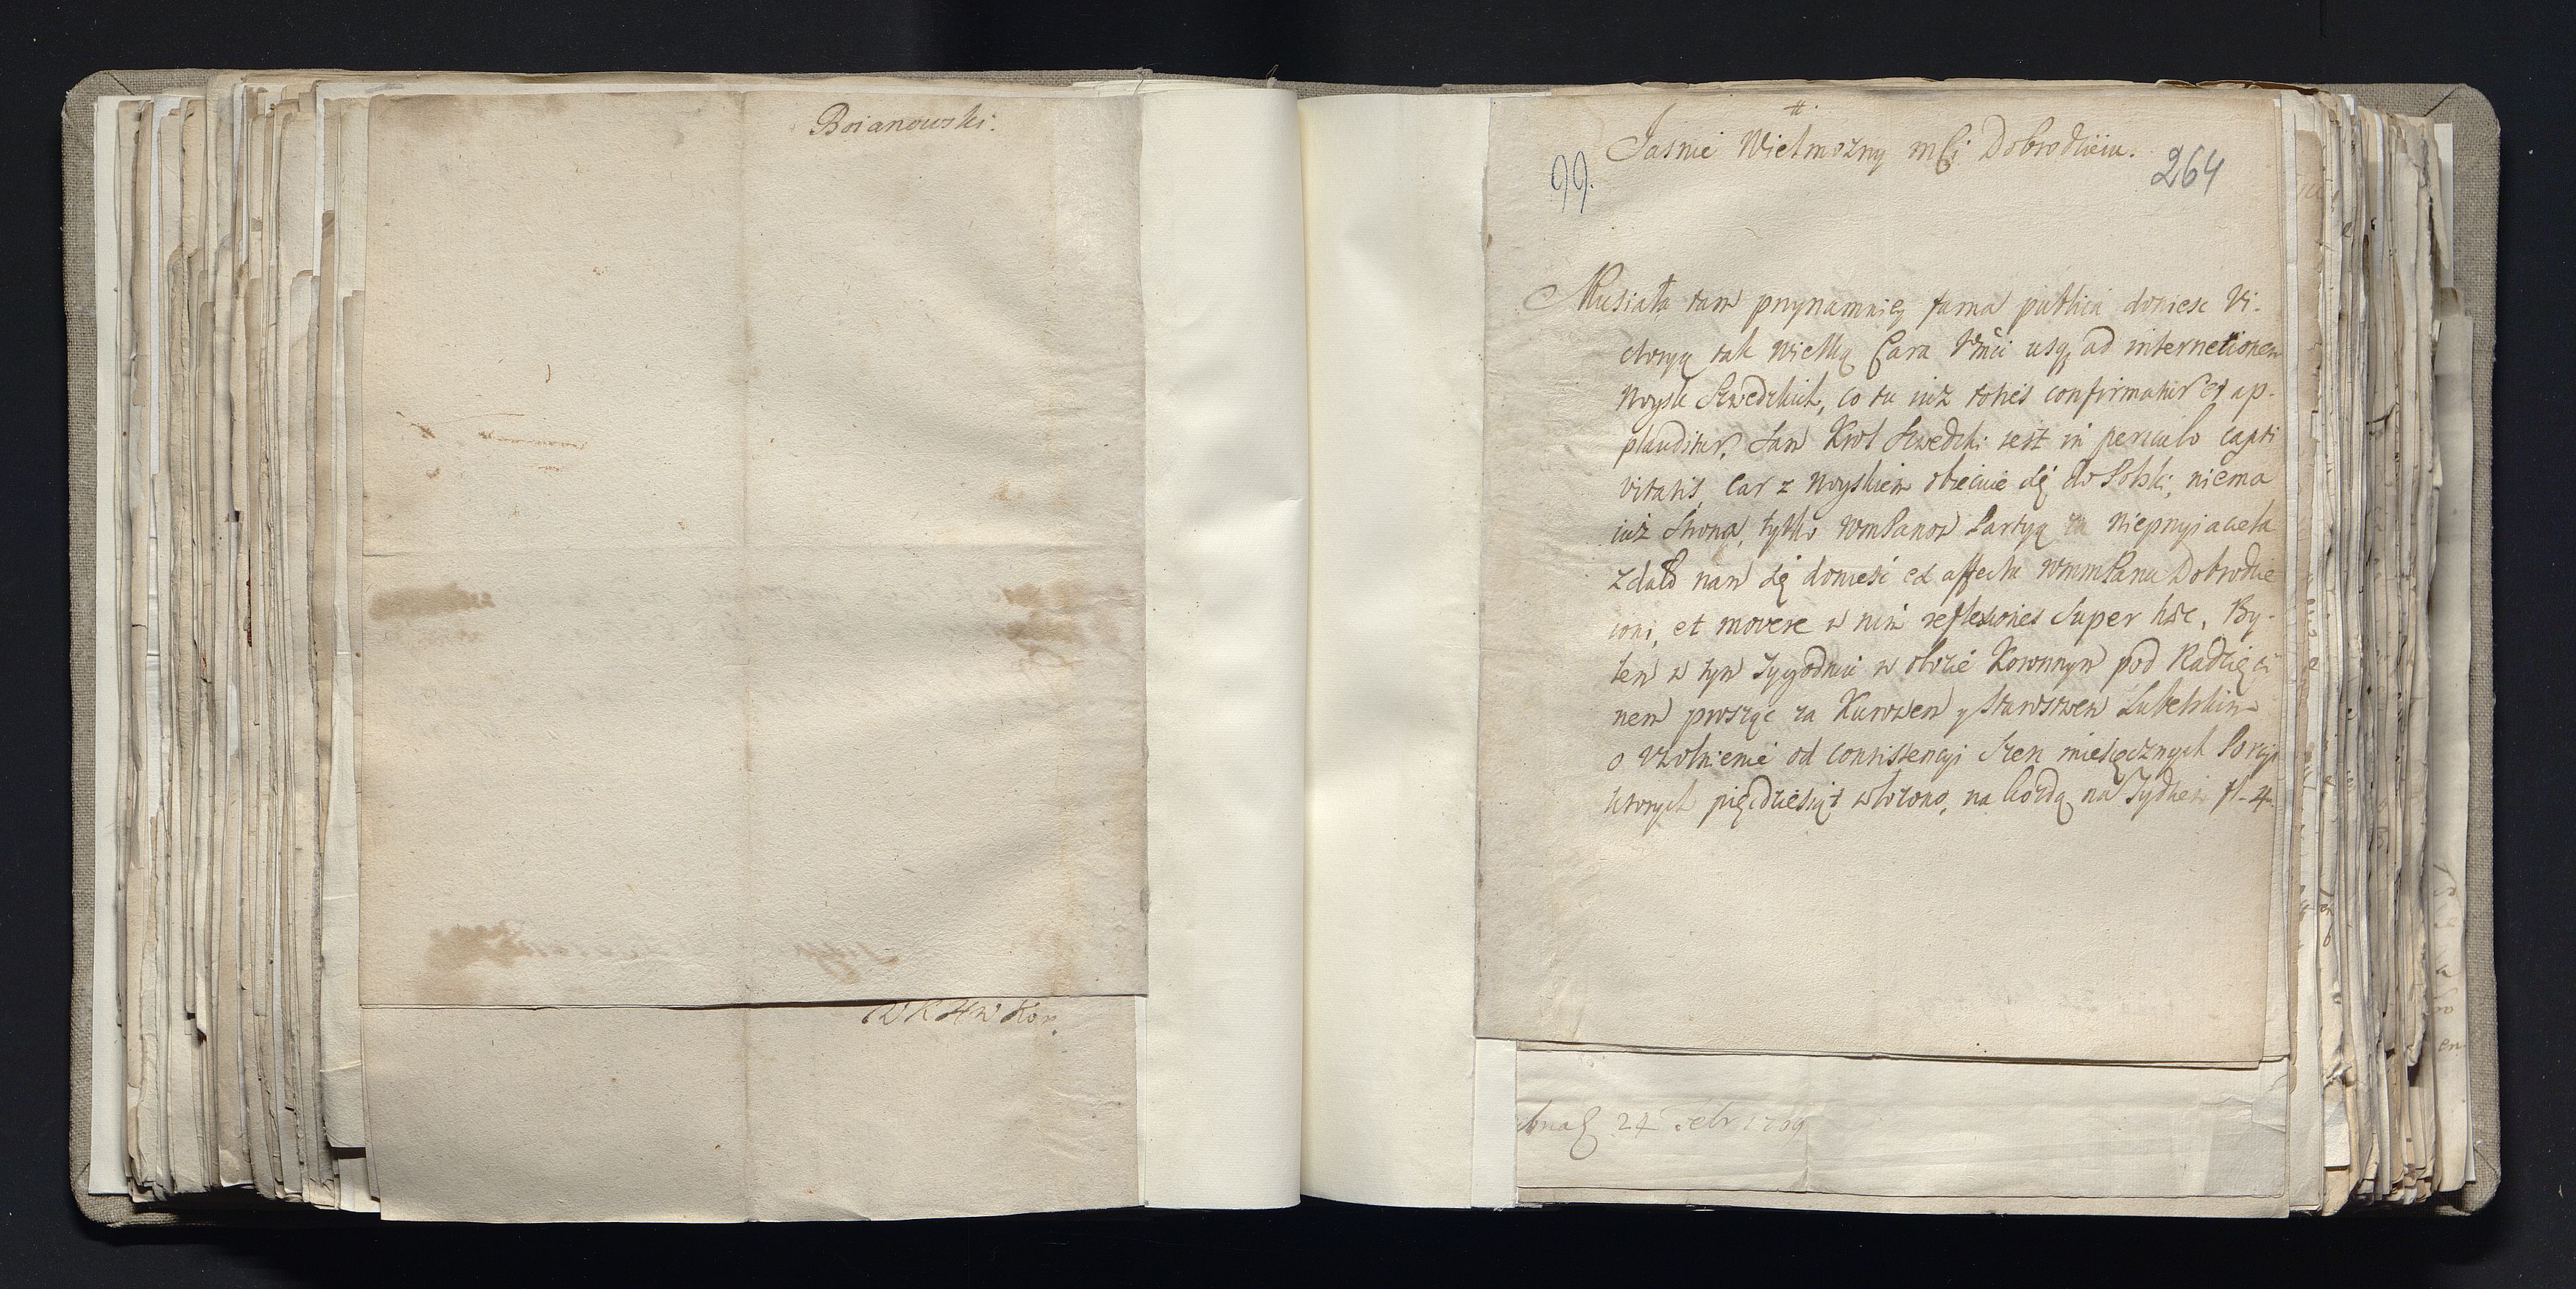 Boianowski.
WKHwKor.
#.
Jasnie Wielmozny mCi Dobrodzieiu.
99.
264
Musiała tam przynamniey fama publica doniesc Vi-
ctoryą tak wielką Cara Jmci usq ad internetionem
Woysk Szwedzkich, co tu iuz toties confirmatur et ap-
plauditur, Sam Krol Szwedzki iest in periculo capti
vitatis, Car z Woyskiem obiecuie się do Polski, niema
iuż Strona, tylko WmPanow Partyą za Niepryiaciela
Zdało nam się doniesć ex affectu WmmPanu Dobrodzie
iowi, et movere w nim reflexiones Super hoc, By-
łem w tym Tygodniu w obozie Koronnym pod Radzięci
nem prosząc za Kurowem y Starostwem Lubelskim
o Uwolnienie od Consistencyi Szesc miesięcznych Porcyi
ktorych pięcdziesiąt włożono, na każdą na Tydzien fl-4
24 Febr 1709